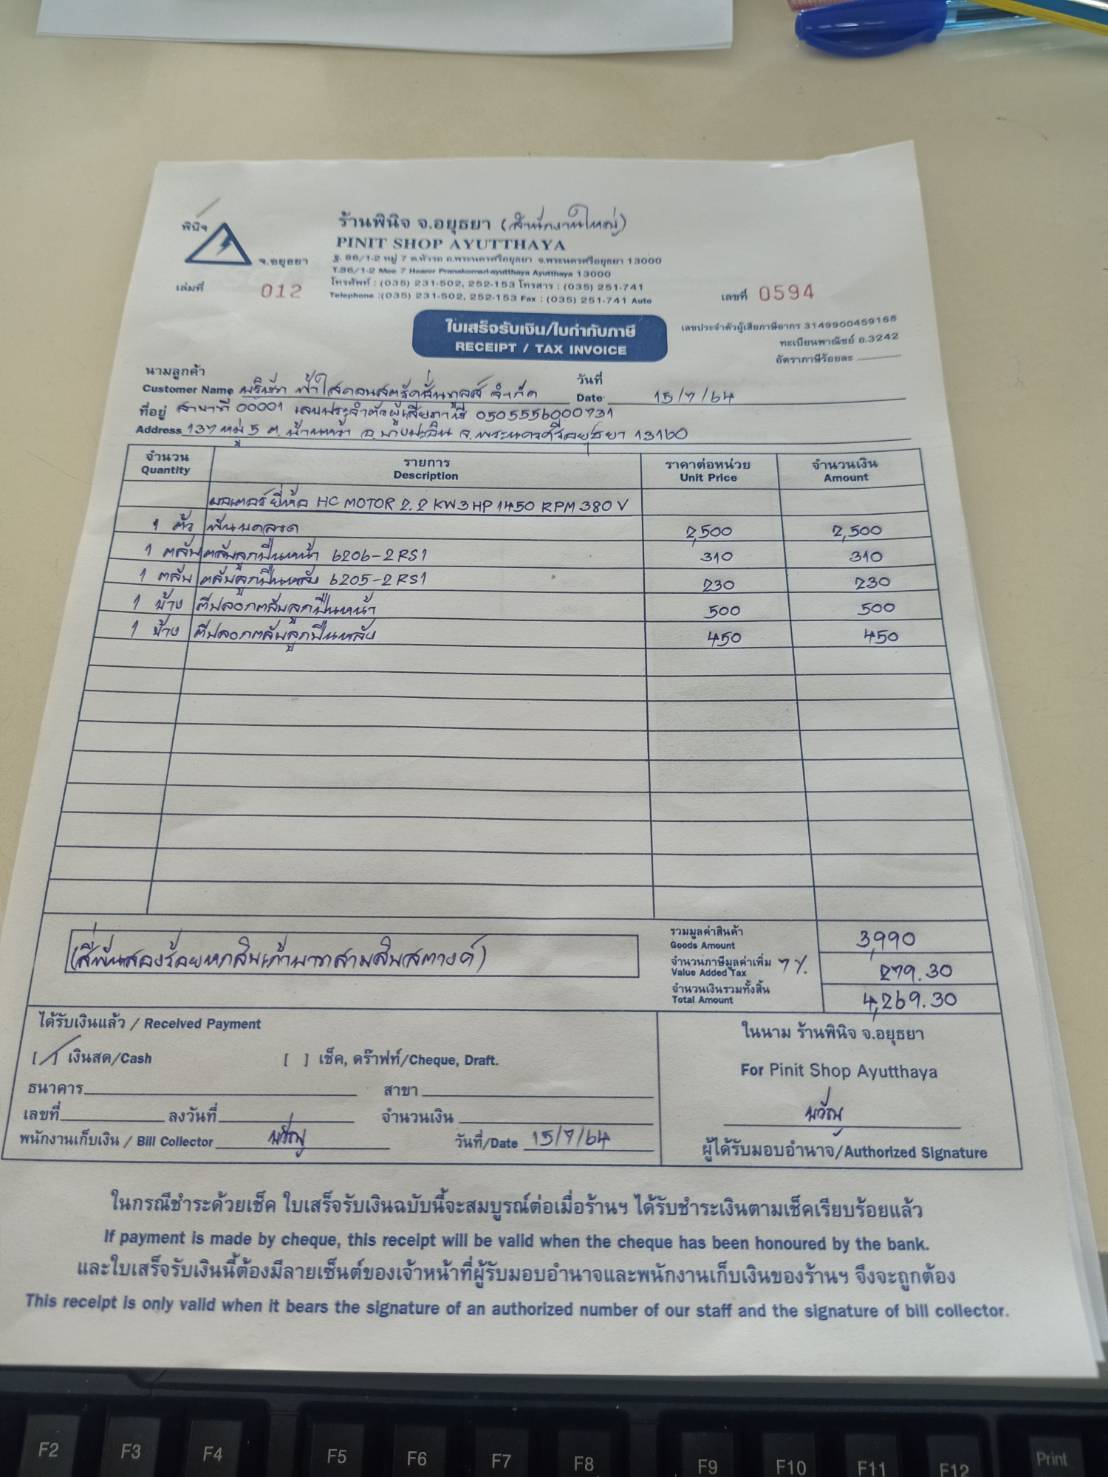 พินิจ
จ.อยุธยา
ร้านพินิจ จ.อยุธยา (สำนักงานใหญ่)
PINIT SHOP AYUTTHAYA
13000
Ayutthaya 13000
โทรศัพท์ : (035) 231-502, 252-153 โทรสาร : (035) 251-741
Telephone :(035) 231-502, 252-153 Fax : (035) 251-741 Auto
เล่มที่ 012
เลขที่ 0594
ใบเสร็จรับเงิน/ใบกำกับภาษี
RECEIPT / TAX INVOICE
เลขประจำตัวผู้เสียภาษีอากร 3149900459165
ทะเบียนพาณิชย์ อ.3242
อัตราภาษีร้อยละ
นามลูกค้า
Customer Name บริษัท ฟ้าใส จำกัด
วันที่
Date 15/7/64
ที่อยู่ สาขาที่ 00001 เลขประจำตัวผู้เสียภาษี 0505556000731
Address 137 หมู่ 5 ต. อ.บางปะอิน จ.พระนครศรีอยุธยา 13160
จำนวน รายการ ราคาต่อหน่วย จำนวนเงิน
Quantity Description Unit Price Amount
มอเตอร์ ยี่ห้อ HC MOTOR 2.2 KW 3HP 1450 RPM 380 V
1 ตัว พันมอเตอร์ 2,500 2,500
1 ตลับ ตลับลูกปืนหน้า 6206-2RS1 310 310
1 ตลับ ตลับลูกปืนหลัง 6205-2RS1 230 230
1 ข้าง ตีปลอกตลับลูกปืนหน้า 500 500
1 ข้าง ตีปลอกตลับลูกปืนหลัง 450 450
(สี่พันสองร้อยหกสิบเก้าบาทสามสิบสตางค์)
รวมมูลค่าสินค้า
Goods Amount 3,990
จำนวนภาษีมูลค่าเพิ่ม 7%
Value Added Tax 279.30
จำนวนเงินรวมทั้งสิ้น
Total Amount 4,269.30
ได้รับเงินแล้ว / Received Payment
[ / ] เงินสด/Cash [ ] เช็ค, ดร๊าฟท์/Cheque, Draft.
ธนาคาร สาขา
เลขที่ ลงวันที่ จำนวนเงิน
พนักงานเก็บเงิน / Bill Collector วันที่/Date 15/7/64
ในนาม ร้านพินิจ จ.อยุธยา
For Pinit Shop Ayutthaya
ผู้ได้รับมอบอำนาจ/Authorized Signature
ในกรณีชำระด้วยเช็ค ใบเสร็จรับเงินฉบับนี้จะสมบูรณ์ต่อเมื่อร้านฯ ได้รับชำระเงินตามเช็คเรียบร้อยแล้ว
If payment is made by cheque, this receipt will be valid when the cheque has been honoured by the bank.
และใบเสร็จรับเงินนี้ต้องมีลายเซ็นต์ของเจ้าหน้าที่ผู้รับมอบอำนาจและพนักงานเก็บเงินของร้านฯ จึงจะถูกต้อง
This receipt is only valid when it bears the signature of an authorized number of our staff and the signature of bill collector.
F2 F3 F4 F5 F6 F7 F8 F9 F10 F11 F12 Print